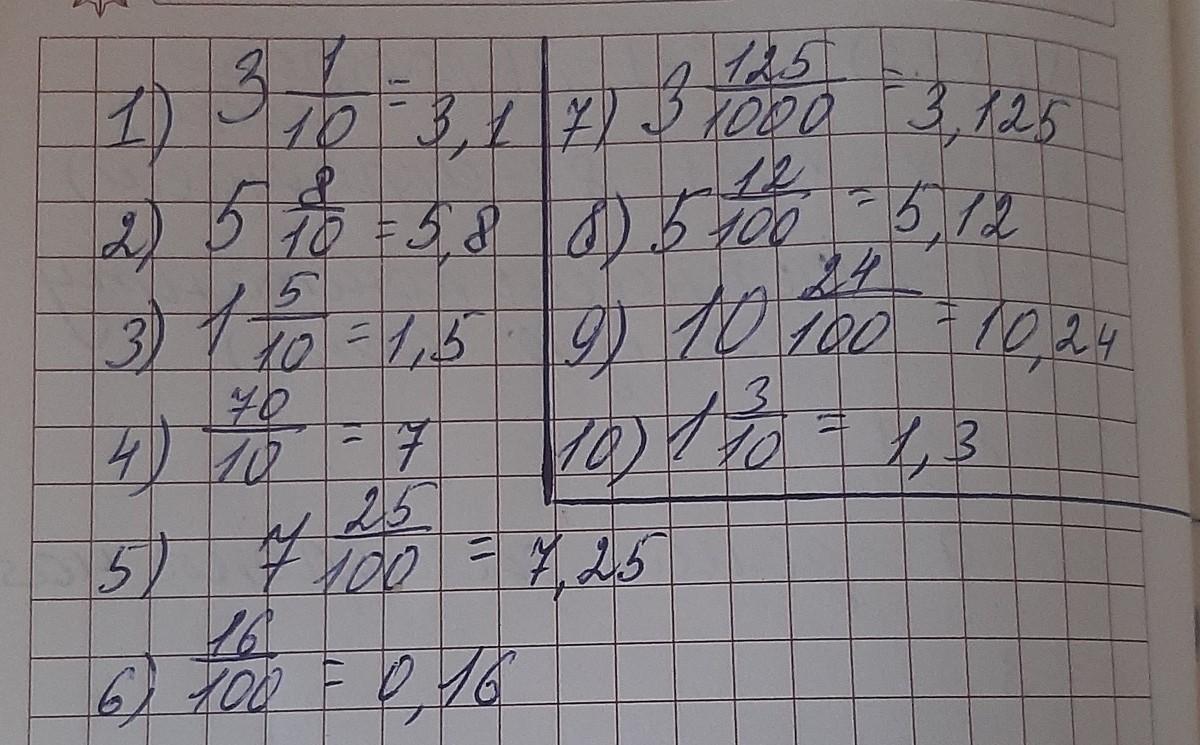 1) 3 1/10 = 3,1
2) 5 8/10 = 5,8
3) 1 5/10 = 1,5
4) 70/10 = 7
5) 7 25/100 = 7,25
6) 16/100 = 0,16
7) 3 125/1000 = 3,125
8) 5 12/100 = 5,12
9) 10 24/100 = 10,24
10) 1 3/10 = 1,3